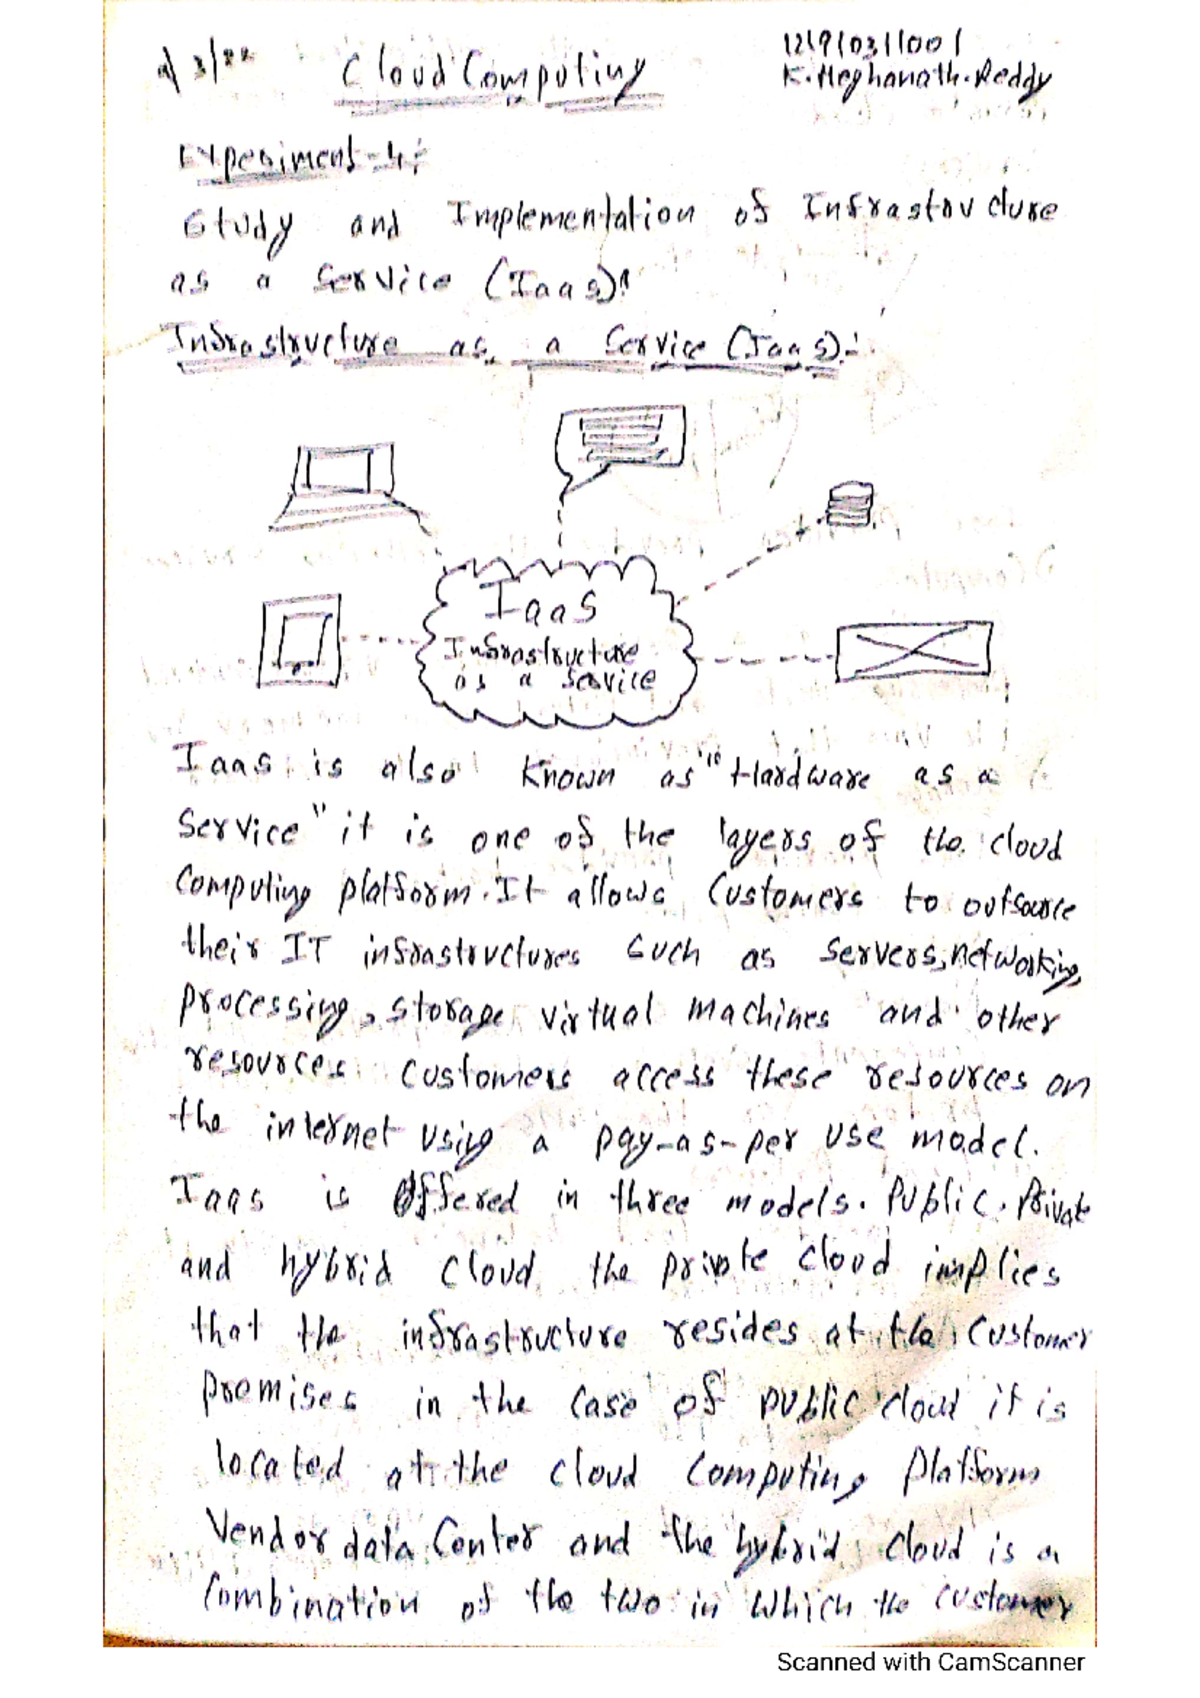 2/3/22 Cloud Computing 121910311001
K.Meghanath.Reddy
Experiment-4:
Study and Implementation of Infrastructure
as a Service (IaaS):
Infrastructure as a Service (IaaS):-
IaaS
Infrastructure
as a service
Iaas is also known as "Hardware as a
Service" it is one of the layers of the cloud
Computing platform. It allows customers to outsource
their IT infrastructures such as servers, networking,
processing, storage virtual machines and other
resources. Customers access these resources on
the internet using a pay-as-per use model.
Iaas is offered in three models. Public. Private
and hybrid cloud. the private cloud implies
that the infrastructure resides at the customer
premises in the case of public cloud it is
located at the cloud computing platform
Vendor data Center and the hybrid cloud is a
Combination of the two in which the customer
Scanned with CamScanner